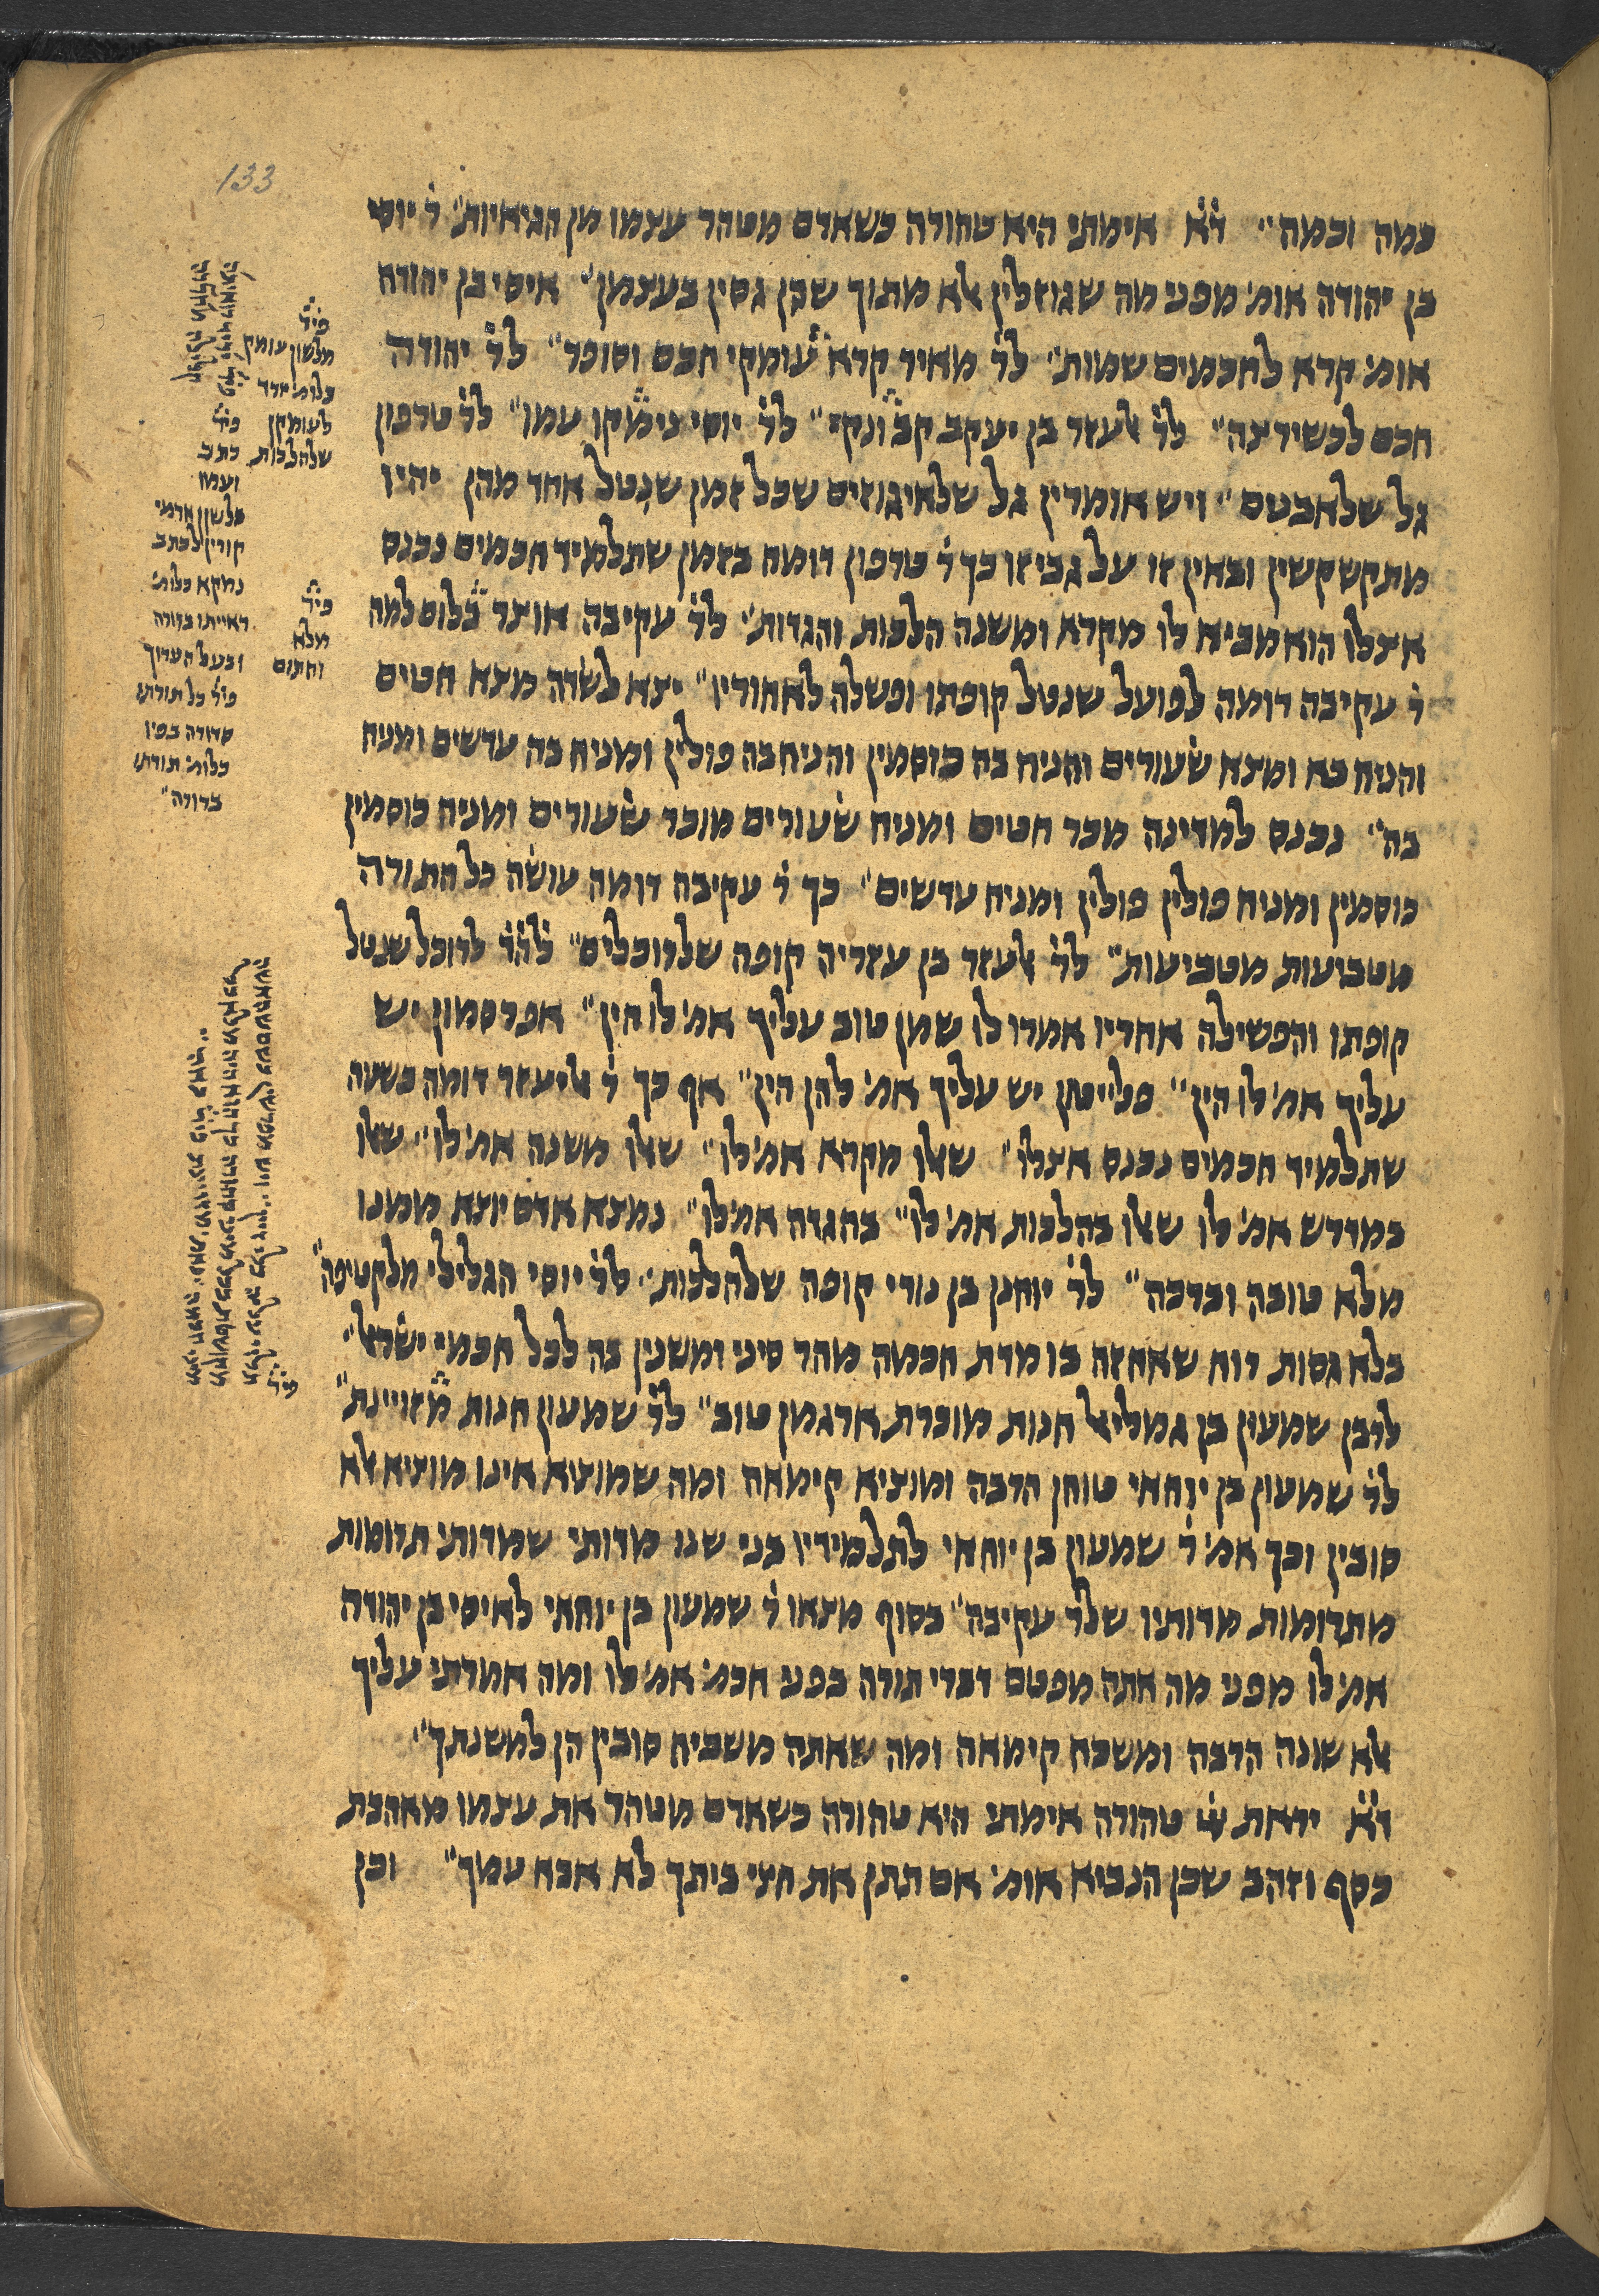 133
כמה וכמה״ ד׳א׳ אימתי היא טהורה כשאדם מטהר עצמו מן הגיאיות״ ר׳ יוסי
בן יהודה אומ׳ מפני מה שגוזלין אלא מתוך שכן גסין בעצמן״ איסי בן יהודה
אומ׳ קרא לחכמים שמות״ לר׳ מאיר קרא עומקי חכם וסופר״ לר׳ יהודה
חכם לכשירצה״ לר׳ אלעזר בן יעקב קב ונקי״ לר׳ יוסי נימקו עמו״ לר׳ טרפון
גל שלאבנים״ ויש אומרין גל שלאיגוזים שכל זמן שנטל אחד מהן יהיו
מתקשקשין ובאין זו על גבי זו כך ר׳ טרפון דומה בזמן שתלמיד חכמים נכנס
אצלו הוא מביא לו מקרא ומשנה הלכות והגדות״ לר׳ עקיבה אוצר בלוס למה
ר׳ עקיבה דומה לפועל שנטל קופתו ופשלה לאחוריו״ יצא לשדה מצא חטים
והניח בא ומצא שעורים והניח בה כוסמין והניח בה פולין ומניח בה עדשים ומניח
בה״ נכנס למדינה מכר חטים ומניח שעורים מוכר שעורים ומניח כוסמין
כוסמין ומניח פולין פולין ומניח עדשים״ כך ר׳ עקיבה דומה עושה כל התורה
מטביעות מטביעות״ לר׳ אלעזר בן עזריה קופה שלרוכלים״ לרוכל שנטל
קופתו והפשילה אחריו אמרו לו שמן טוב עליך אמ׳ לו הין״ אפרסמון יש
עליך אמ׳ לו הין״ פלייטון יש עליך אמ׳ להן הין״ אף כך ר׳ אליעזר דומה בשעה
שתלמיד חכמים נכנס אצלו״ שאלו מקרא אמ׳ לו״ שאלו משנה אמ׳ לו״ שאלו
במדרש אמ׳ לו שאלו בהלכות אמ׳ לו״ בהגדה אמ׳ לו״ נמצא אדם יוצא ממנו
מלא טובה וברכה״ לר׳ יוחנן בן נורי קופה שלהלכות״ לר׳ יוסי הגלילי מלקטיפה
בלא גסות רוח שאחזה בו מדת חכמה מהר סיני ומשנין בה לכל חכמי ישראל״
לרבן שמעון בן גמליאל חנות מוכרת ארגמן טוב״ לר׳ שמעון חנות מזויינת״
לר׳ שמעון בן יוחאי טוחן הרבה ומוציא קימאה ומה שמוציא אינו מוציא אלא
סובין וכך אמ׳ ר׳ שמעון בן יוחאי לתלמידיו בני שנו מדותי שמדותי תרומות
מתרומות מדותיו שלר׳ עקיבה״ בסוף מצאו ר׳ שמעון בן יוחאי לאיסי בן יהודה
אמ׳ לו מפני מה אתה מפטם דברי תורה בפני חכמ׳ אמ׳ לו ומה אמרתי עליך
אלא שונה הרבה ומשכח קימאה ומה שאתה משכיח סובין הן למשנתך״
ד׳א׳ יראת טהורה אימתי היא טהורה כשאדם מטהר את עצמו מאהבת
כסף וזהב שכן הנביא אומ׳ אם תתן את חצי ביתך לא אבא עמך״ וכן
פיר׳
מלשון עומק
כלומ׳ ירד
לעומקן
שלהלכות
פיר׳
כתב
ועמו
מלשון ארמי
קורין לכתב
נמקא כלומ׳
ראייתו ברורה
ובעל הערוך
פיר׳ כל תורתו
סדורה בפיו
כלומ׳ תורתו
ברורה״
פיר׳
מלא
וחתום
פיר׳